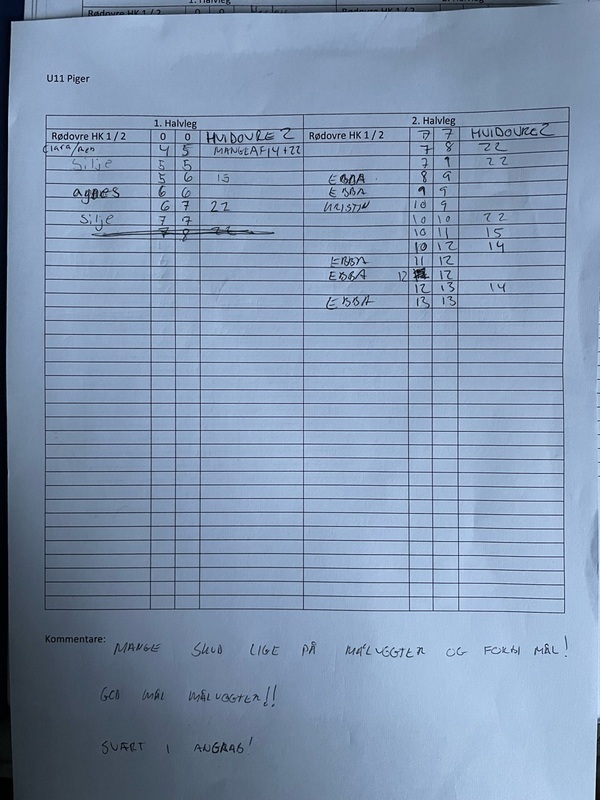 1. Halvleg
Rødovre HK 1 / 2 0 0
U11 Piger
1. Halvleg 2. Halvleg
Rødovre HK 1 / 2 0 0 HVIDOVRE 2 Rødovre HK 1 / 2 7 7 HVIDOVRE 2
Clara/ 4 5 MANGE AF 14+22 7 8 22
Silje 5 5 7 9 22
5 6 15 EBBA 8 9
agnes 6 6 EBBA 9 9
6 7 22 KRISTIN 10 9
Silje 7 7 10 10 22
7 8 22 10 11 15
10 12 14
EBBA 11 12
EBBA 12 12
12 13 14
EBBA 13 13
Kommentare: MANGE SKUD LIGE PÅ MÅLVOGTER OG FORBI MÅL!
GOD MÅL MÅLVOGTER!!
SVÆRT I ANGREB!